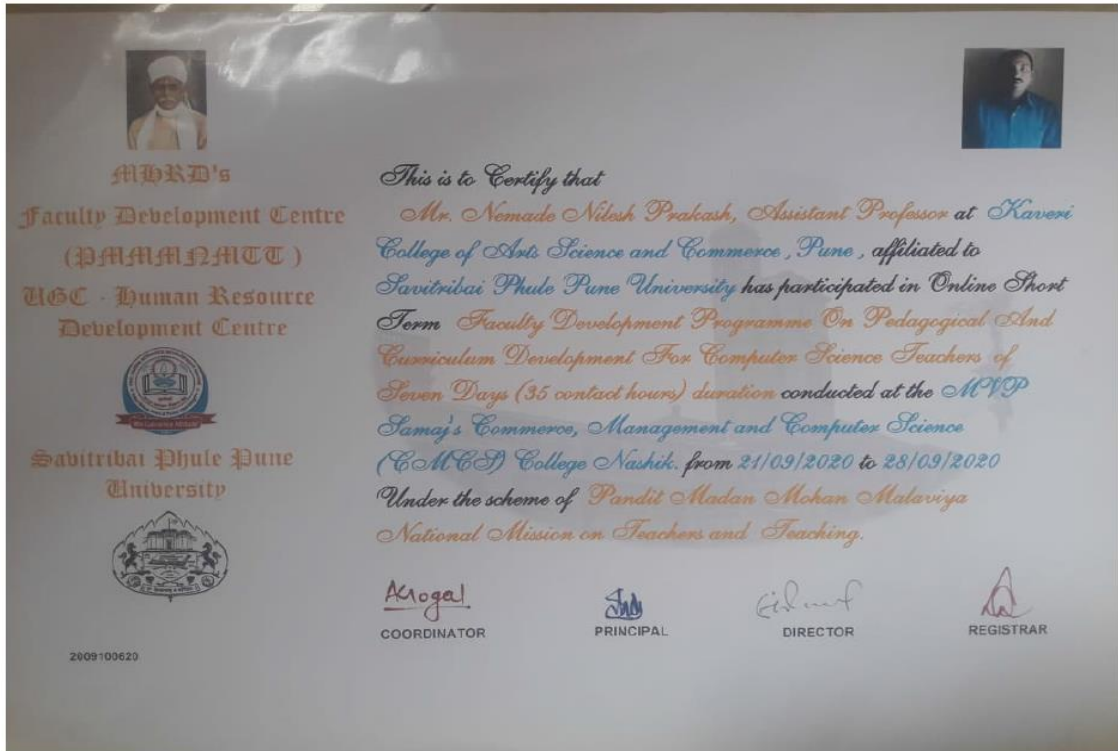 MHRD's
Faculty Development Centre
(PMMMNMTT )
UGC - Human Resource
Development Centre
Savitribai Phule Pune
University
2009100620
This is to Certify that
Mr. Nemade Nilesh Prakash, Assistant Professor at Kaveri
College of Arts Science and Commerce , Pune , affiliated to
Savitribai Phule Pune University has participated in Online Short
Term Faculty Development Programme On Pedagogical And
Curriculum Development For Computer Science Teachers of
Seven Days (35 contact hours) duration conducted at the MVP
Samaj's Commerce, Management and Computer Science
(CMCS) College Nashik. from 21/09/2020 to 28/09/2020
Under the scheme of Pandit Madan Mohan Malaviya
National Mission on Teachers and Teaching.
COORDINATOR
PRINCIPAL
DIRECTOR
REGISTRAR